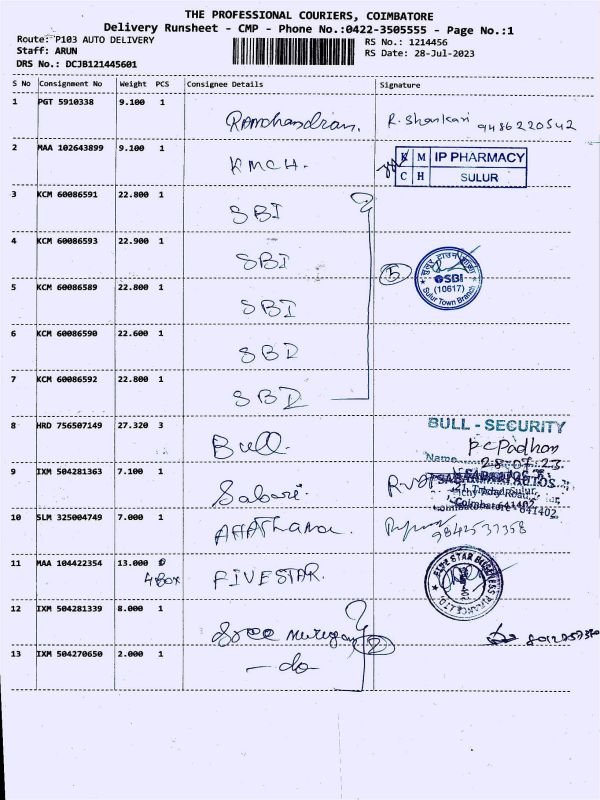 THE PROFESSIONAL COURIERS, COIMBATORE
Delivery Runsheet - CMP - Phone No.:0422-3505555 - Page No.:1
Route: P103 AUTO DELIVERY
RS No.: 1214456
Staff: ARUN
RS Date: 28-Jul-2023
DRS No.: DCJB121445601
S No Consignment No Weight PCS Consignee Details Signature
1 PGT 5910338 9.100 1 Ramchandran. R. Shankari 9486220542
2 MAA 102643899 9.100 1 KMCH. K M C H IP PHARMACY SULUR
3 KCM 60086591 22.800 1 SBI
4 KCM 60086593 22.900 1 SBI
5 SBI (10617) Sulur Town Branch
5 KCM 60086589 22.800 1 SBI
6 KCM 60086590 22.600 1 SBI
7 KCM 60086592 22.800 1 SBI
8 HRD 756507149 27.320 3 Bull. BULL - SECURITY
P C Padhan
Name
28.07.23
9 IXM 504281363 7.100 1 Sabari. SABARI AUTOS
Trichy Road, Sulur,
Coimbatore - 641402
10 SLM 325004749 7.000 1 9842537358
11 MAA 104422354 13.000
4 Box FIVESTAR. FIVE STAR BUSINESS FINANCE LTD.
12 IXM 504281339 8.000 1 Sree Murugan 2
13 IXM 504270650 2.000 1 -do-